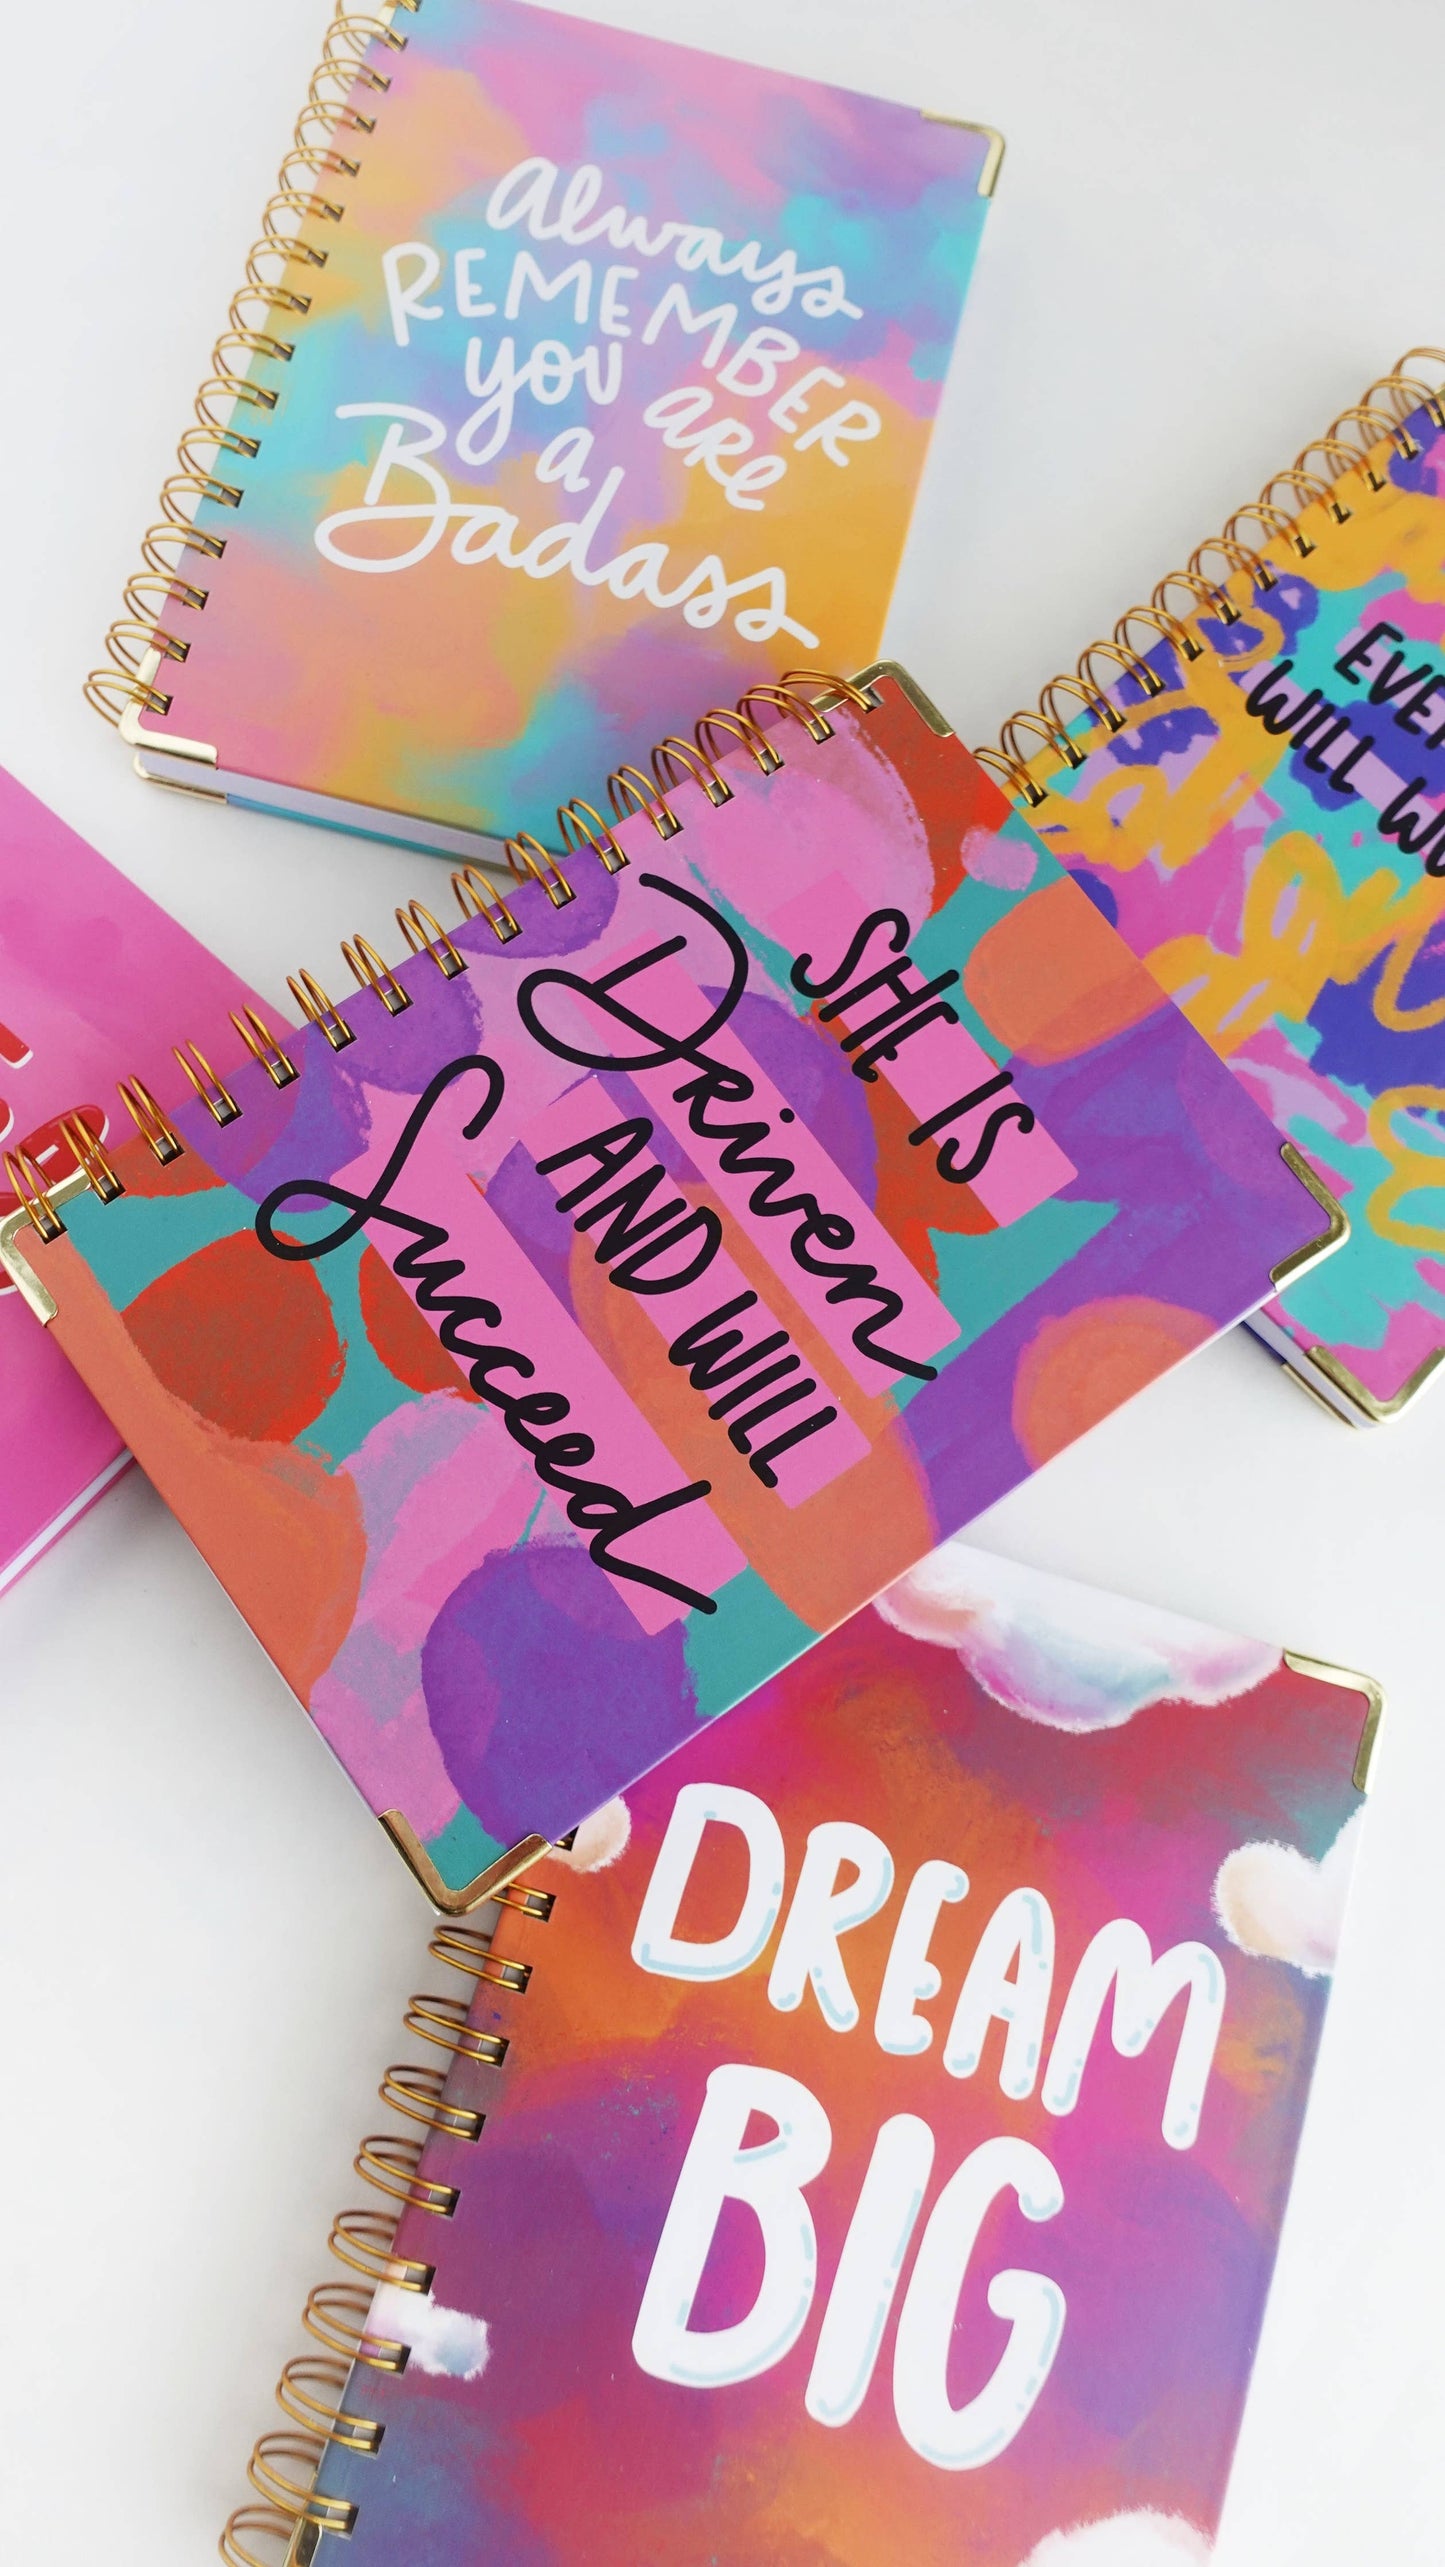 Always
REMEMBER
you are
a
Badass
WILL
SHE IS
Driven
AND WILL
Succeed
DREAM
BIG